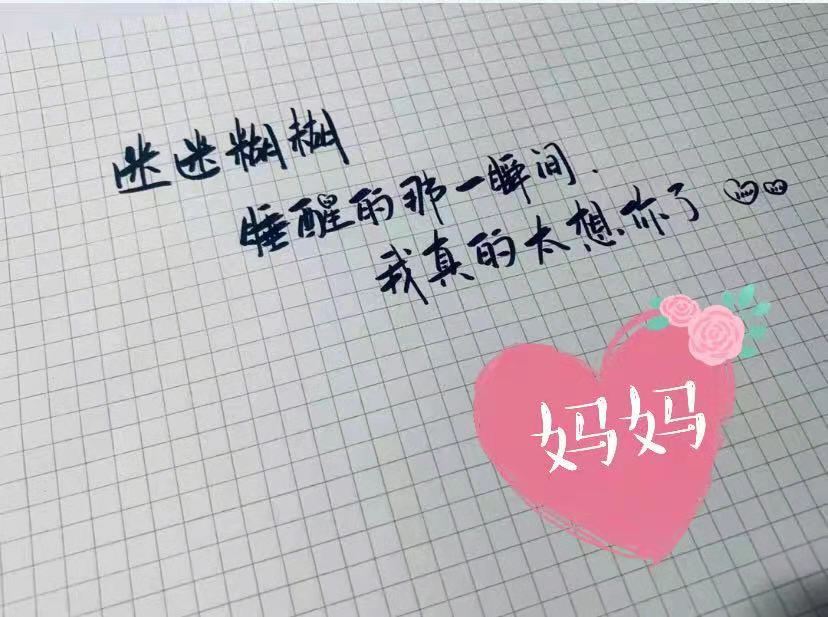 迷迷糊糊
睡醒的那一瞬间.
我真的太想你了
妈妈